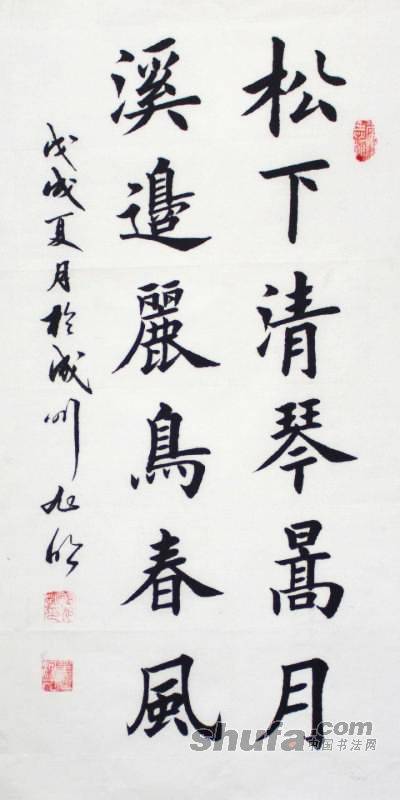 松下清琴暠月
溪邊麗鳥春風
戊戌夏月於成州旭
shufa.com
中国书法网